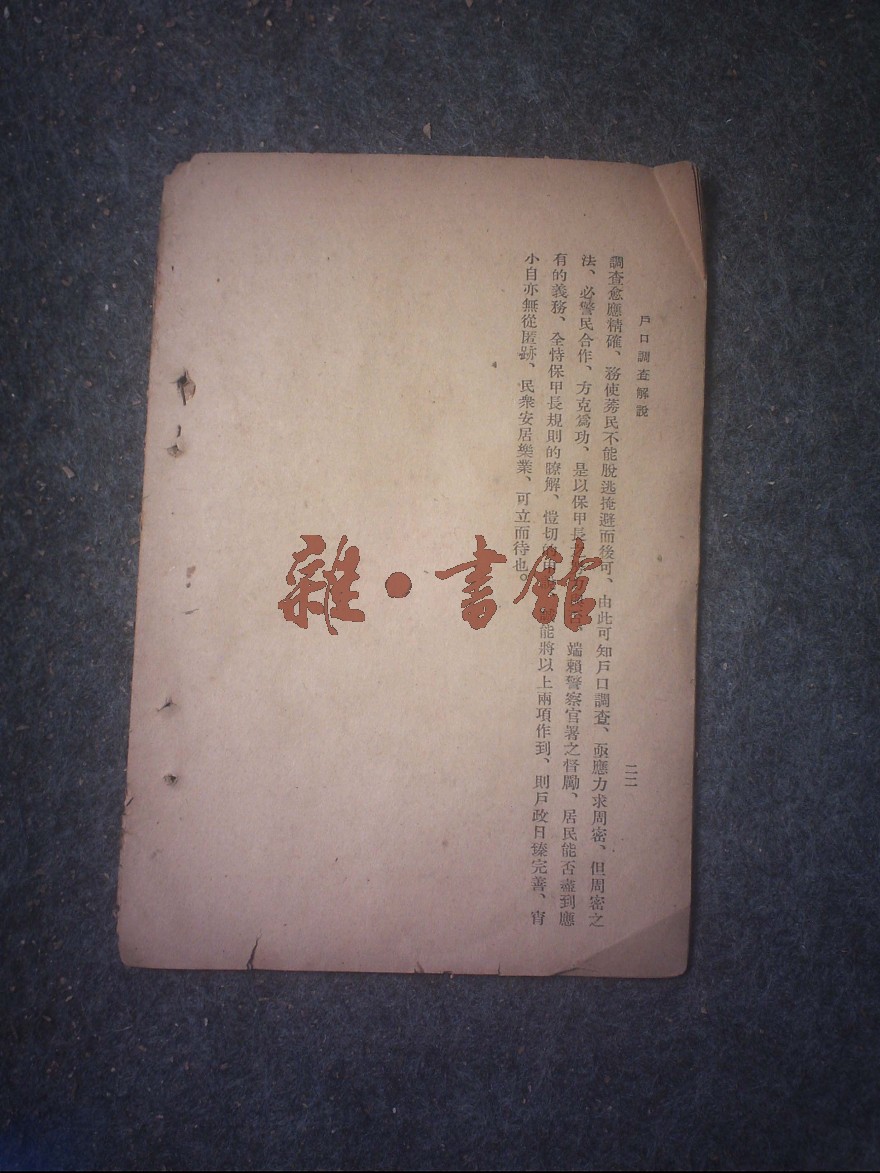 戶口調查解說
二二
調查愈應精確、務使莠民不能脫逃掩避而後可、由此可知戶口調查、亟應力求周密、但周密之
法、必警民合作、方克爲功、是以保甲長端賴警察官署之督勵、居民能否盡到應
有的義務、全恃保甲長規則的瞭解、愷切能將以上兩項作到、則戶政日臻完善、宵
小自亦無從匿跡、民衆安居樂業、可立而待也。
雜·書館